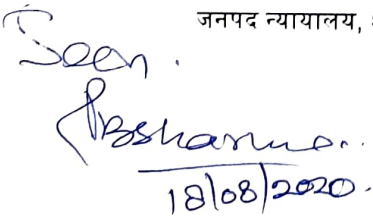 जनपद न्यायालय,
Seen.
PBSharma..
18/08/2020.